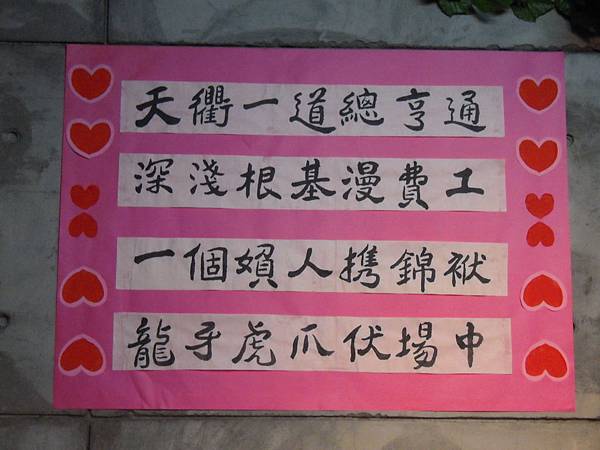 天衢一道總亨通
深淺根基漫費工
一個嬪人携錦袱
龍手虎爪伏場中